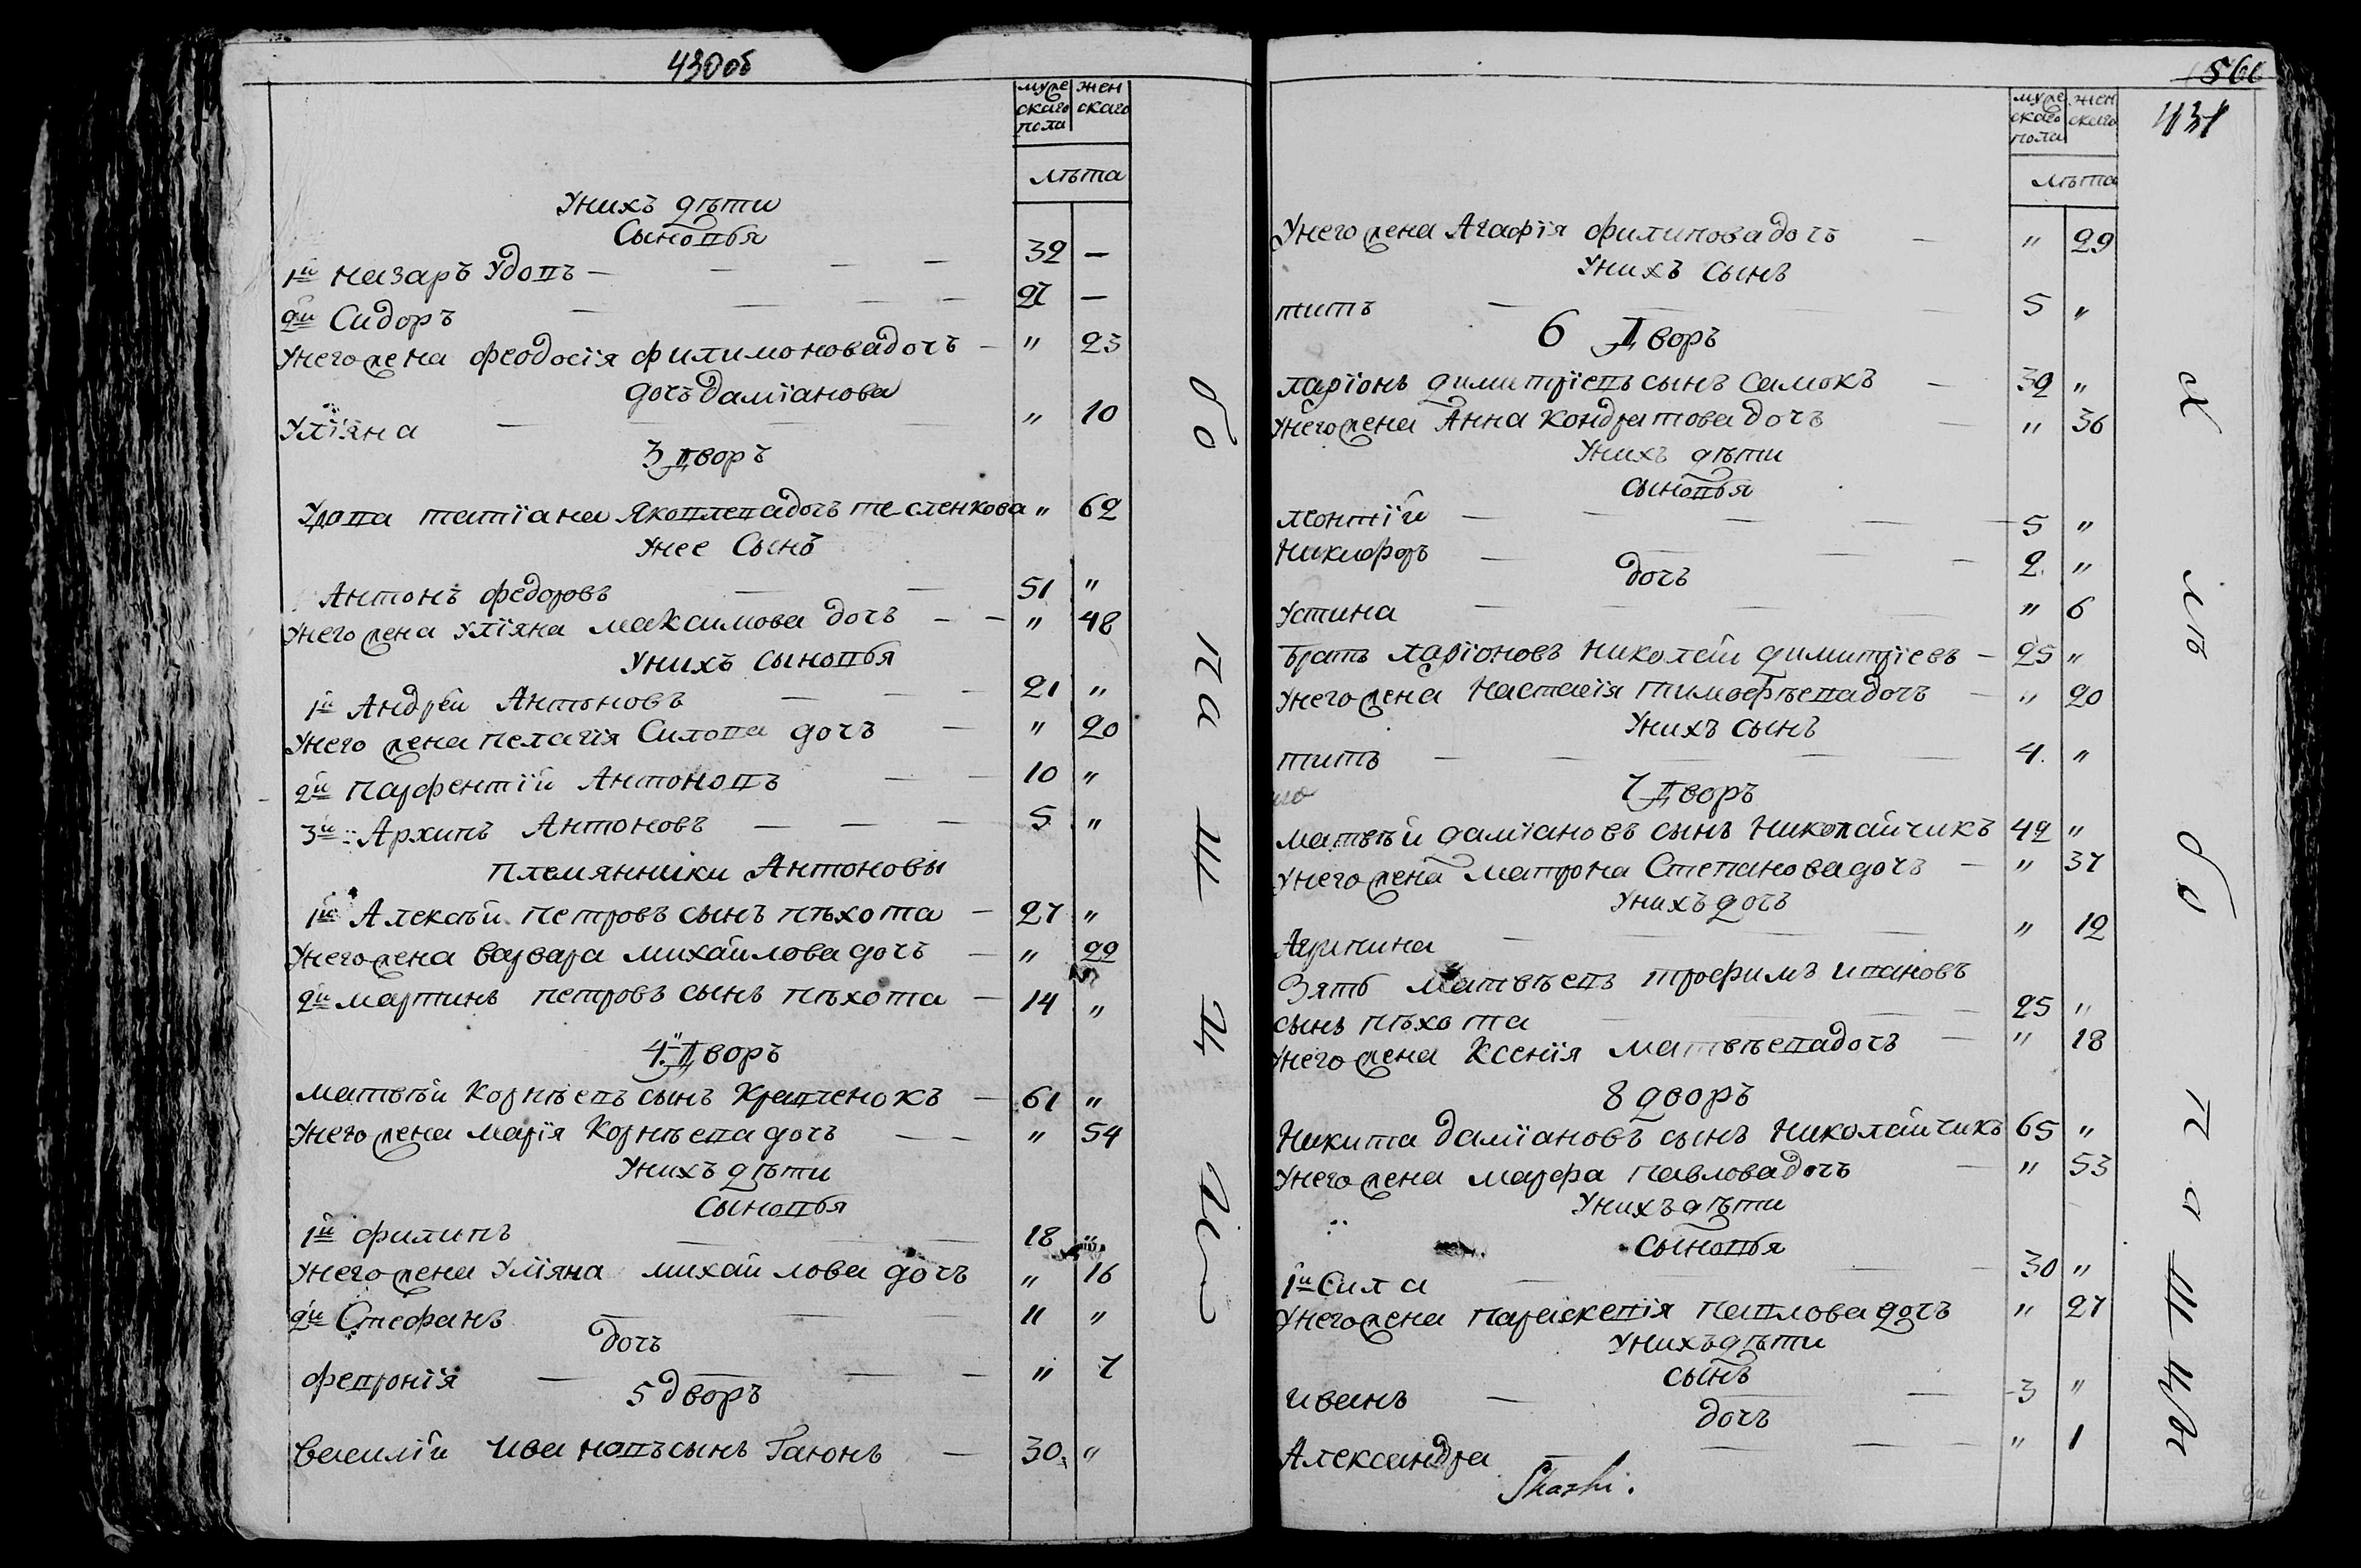 430об
муже
скаго
пола
жен
скаго
лѣта
У нихъ дѣти
Сыновья
1й Назаръ Удовъ — 32 —
2й Сидоръ — 27 —
У него жена Феодосія Филимонова дочь — " 23
дочь Даміанова
Уліяна — " 10
3 Дворъ
Удова Татіана Яковлева дочь Тесленкова " 62
У нее Сынъ
Антонъ Федоровъ — 51 "
У него жена Уліяна Максимова дочь — " 48
У нихъ сыновья
1й Андрей Антоновъ — 21 "
У него жена Пелагія Силова дочь — " 20
2й Парфентій Антоновъ — 10 "
3й Архипъ Антоновъ — 5 "
Племянники Антоновы
1й Алексѣй Петровъ сынъ Пѣхота — 27 "
У него жена Варвара Михайлова дочь — " 22
2й Мартинъ Петровъ сынъ Пѣхота — 14 "
4й Дворъ
Матвѣй Корнѣевъ сынъ Кравченокъ — 61 "
У него жена Марія Корнѣева дочь — " 54
У нихъ дѣти
Сыновья
1й Филипъ — 18 "
У него жена Уліяна Михайлова дочь " 16
2й Стефанъ — 11 "
дочь
Февронія — " 7
5 дворъ
Василій Ивановъ сынъ Гаюнъ — 30 "
566
431
муже
скаго
пола
жен
скаго
лѣта
У него жена Агафія Филипова дочь — " 29
У нихъ Сынъ
Титъ — 5 "
6 Дворъ
Ларіонъ Димитріевъ сынъ Самокъ — 39 "
У него жена Анна Кондратова дочь — " 36
У нихъ дѣти
сыновья
Леонтій — 5 "
Никифоръ — 2 "
дочь
Устина — " 6
Братъ Ларіоновъ Николай Димитріевъ — 25 "
У него жена Настасія Тимофѣева дочь — " 20
У нихъ сынъ
Титъ — 4 "
7 Дворъ
Матвѣй Даміановъ сынъ Николайчикъ 42 "
У него жена Матрона Степанова дочь — " 37
У нихъ дочь
Агрипина — " 12
Зять Матвѣевъ Трофимъ Ивановъ
сынъ Пѣхота — 25 "
У него жена Ксенія Матвѣева дочь — " 18
8 дворъ
Никита Даміановъ сынъ Николайчикъ 65 "
У него жена Марфа Павлова дочь — " 53
У нихъ дѣти
Сыновья
1й Сила — 30 "
У него жена Параскевія Павлова дочь " 27
У нихъ дѣти
сынъ
Иванъ — 3 "
дочь
Александра — " 1